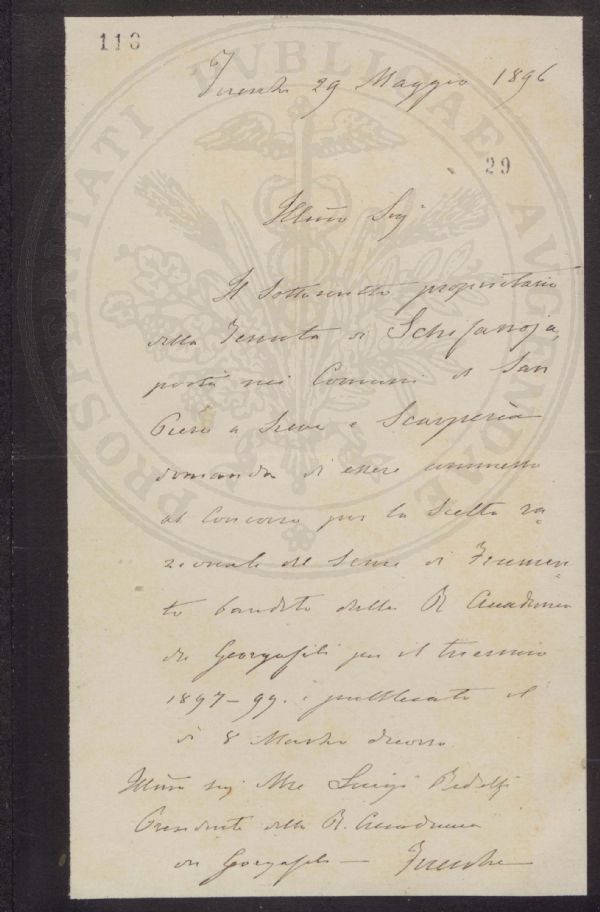 118
Firenze 29 Maggio 1896
29
Illmo Sig
Il Sottoscritto proprietario
della Tenuta di Schifanoja,
posta nei Comuni di San
Piero a Sieve e Scarperia
domanda di essere ammesso
al Concorso per la Scelta ra-
zionale del Seme di Frumen-
to bandito dalla R. Accademia
dei Georgofili per il triennio
1897-99. e pubblicato il
dì 8 Marzo decorso.
Illmo sig Mse Luigi Ridolfi
Presidente della R. Accademia
dei Georgofili — Firenze
PROSPERITATI PVBLICAE AVGENDAE